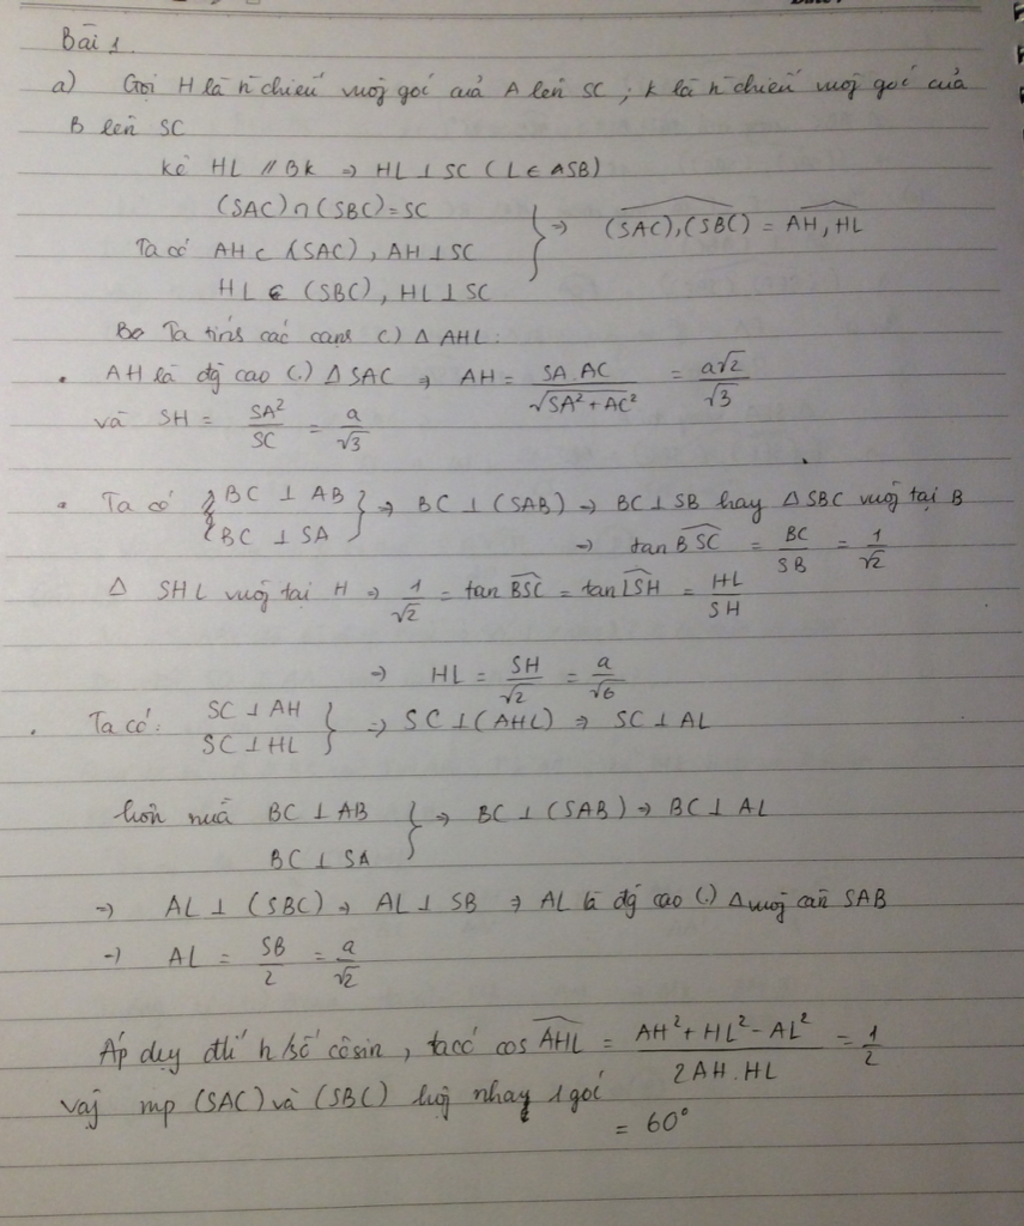 Bài 1.
a) Gọi H là h chiếu vuôg góc của A lên SC ; K là h chiếu vuôg góc của
B lên SC
kẻ HL // BK → HL ⊥ SC (L ∈ SB)
(SAC) ∩ (SBC) = SC
Ta có AH ⊂ (SAC), AH ⊥ SC } ⇒ (SAC),(SBC) = AH, HL
HL ⊂ (SBC), HL ⊥ SC
Ta tính các cạnh (.) Δ AHL:
• AH là đg cao (.) Δ SAC ⇒ AH = SA.AC / √(SA² + AC²) = a√2 / √3
và SH = SA² / SC = a / √3
• Ta có { BC ⊥ AB, BC ⊥ SA } → BC ⊥ (SAB) → BC ⊥ SB hay Δ SBC vuôg tại B
→ tan BSC = BC / SB = 1 / √2
Δ SHL vuôg tại H ⇒ 1 / √2 = tan BSC = tan LSH = HL / SH
→ HL = SH / √2 = a / √6
• Ta có: SC ⊥ AH, SC ⊥ HL } → SC ⊥ (AHL) → SC ⊥ AL
hơn nữa BC ⊥ AB
BC ⊥ SA } → BC ⊥ (SAB) → BC ⊥ AL
→ AL ⊥ (SBC) → AL ⊥ SB ⇒ AL là đg cao (.) Δ vuôg cân SAB
→ AL = SB / 2 = a / √2
Áp dụg đlí h/số côsin, ta có cos AHL = (AH² + HL² - AL²) / (2AH.HL) = 1 / 2
vậy mp (SAC) và (SBC) 1 góc
= 60°